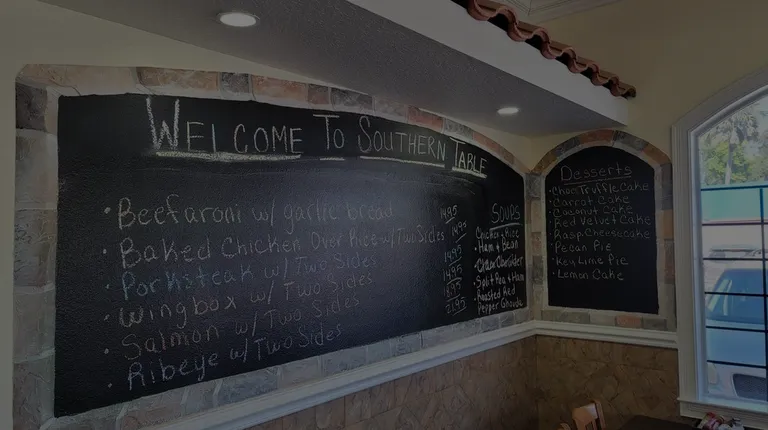 WELCOME TO SOUTHERN TABLE
• Beefaroni w/ garlic bread 1495
• Baked Chicken Over Rice w/ Two Sides 1495
• Porksteak w/ Two Sides 1495
• Wingbox w/ Two Sides 1495
• Salmon w/ Two Sides
• Ribeye w/ Two Sides 2195
SOUPS
Chicken & Rice
• Ham & Bean
• Clam Chowder
• Split Pea & Ham
• Roasted Red
Pepper Gouda
Desserts
• Choc Truffle Cake
• Carrot Cake
• Coconut Cake
• Red Velvet Cake
• Rasp Cheesecake
• Pecan Pie
• Key Lime Pie
• Lemon Cake